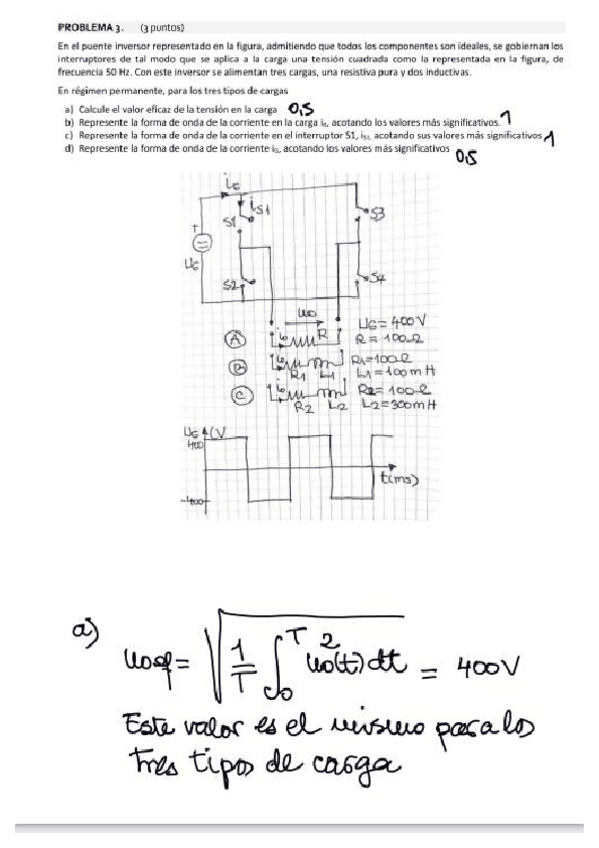 PROBLEMA 3. (3 puntos)
En el puente inversor representado en la figura, admitiendo que todos los componentes son ideales, se gobiernan los
interruptores de tal modo que se aplica a la carga una tensión cuadrada como la representada en la figura, de
frecuencia 50 Hz. Con este inversor se alimentan tres cargas, una resistiva pura y dos inductivas.
En régimen permanente, para los tres tipos de cargas
a) Calcule el valor eficaz de la tensión en la carga 0,5
b) Represente la forma de onda de la corriente en la carga io, acotando los valores más significativos. 1
c) Represente la forma de onda de la corriente en el interruptor S1, iS1, acotando sus valores más significativos 1
d) Represente la forma de onda de la corriente iG, acotando los valores más significativos 0,5
iG
iS1
S1
S3
+
UG
S2
S4
uo
UG = 400V
A io R R = 100Ω
B io R1 L1 R1=100Ω
L1 = 100mH
C io R2 L2 R2 = 100Ω
L2 = 300mH
UG (V)
400
t(ms)
-400
a) uoef = √ 1/T ∫0T uo2(t) dt = 400V
Este valor es el mismo para los
tres tipos de carga